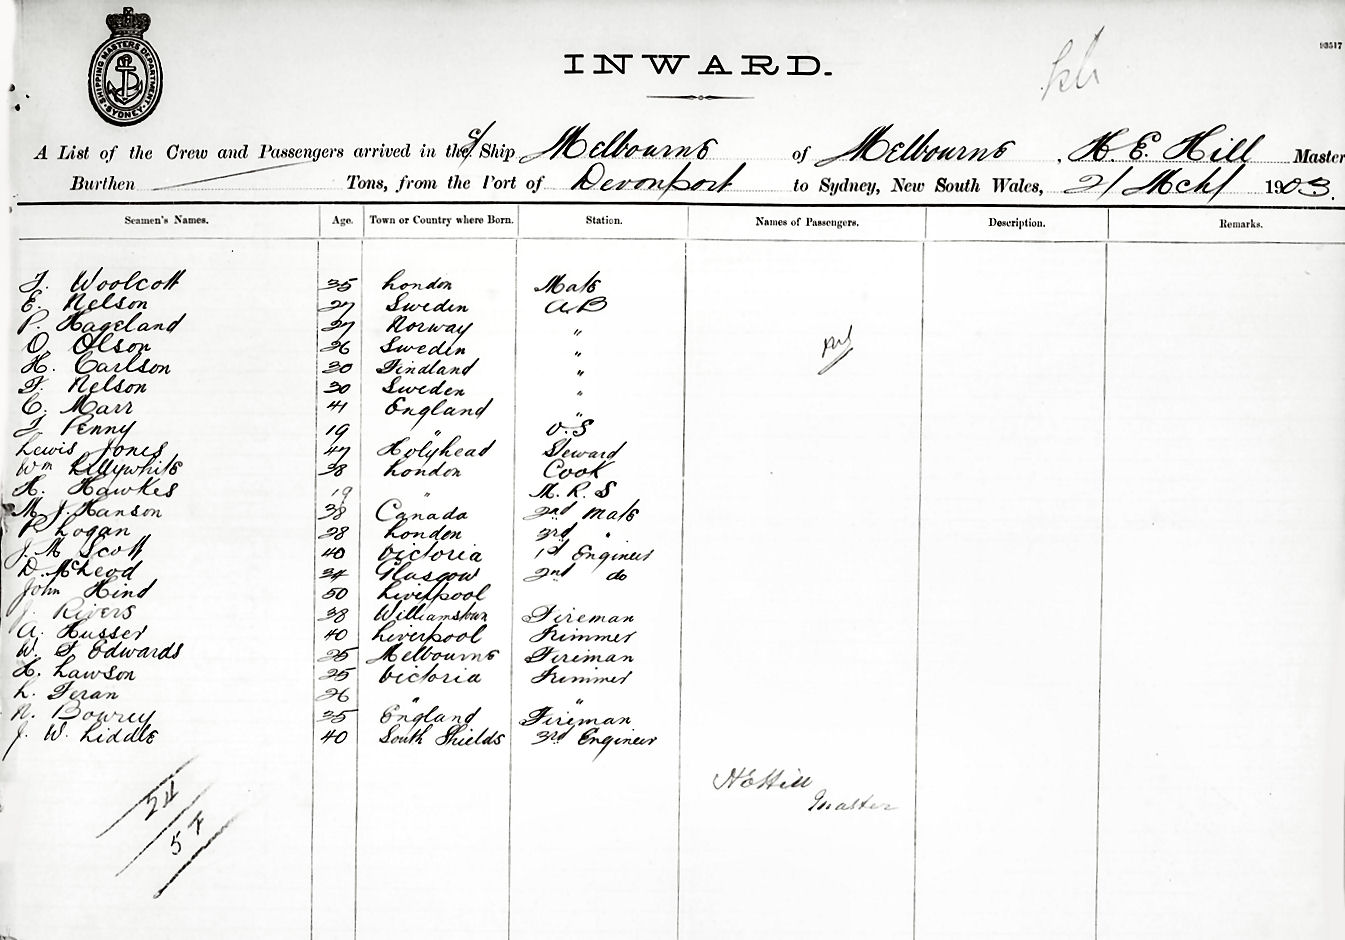 SHIPPING MASTERS DEPARTMENT
SYDNEY
93517
INWARD.
A List of the Crew and Passengers arrived in the S/ Ship Melbourne of Melbourne, H. E. Hill Master
Burthen Tons, from the Port of Devonport to Sydney, New South Wales, 21 Mch/ 1903.
Seamen's Names. Age. Town or Country where Born. Station. Names of Passengers. Description. Remarks.
F. Woolcott 35 London Mate
E. Nelson 27 Sweden AB
P. Hageland 27 Norway "
O. Olson 26 Sweden "
H. Carlson 30 Findland "
F. Nelson 30 Sweden "
C. Marr 41 England "
T. Penny 19 " O.S
Lewis Jones 47 Holyhead Steward
Wm Lillywhite 38 London Cook
H. Hawkes 19 " M.R.S
M. J. Hanson 38 Canada 2nd Mate
P. Logan 28 London 3rd "
J. M Scott 40 Victoria 1st Engineer
D. McLeod 34 Glasgow 2nd do
John Hind 50 Liverpool
J. Rivers 38 Williamstown Fireman
A. Husser 40 Liverpool Trimmer
W. F. Edwards 25 Melbourne Fireman
H. Lawson 25 Victoria Trimmer
L. Feran 26 " "
N. Bowrey 35 England Fireman
J. W. Liddle 40 South Shields 3rd Engineer
H E Hill
Master
24
57